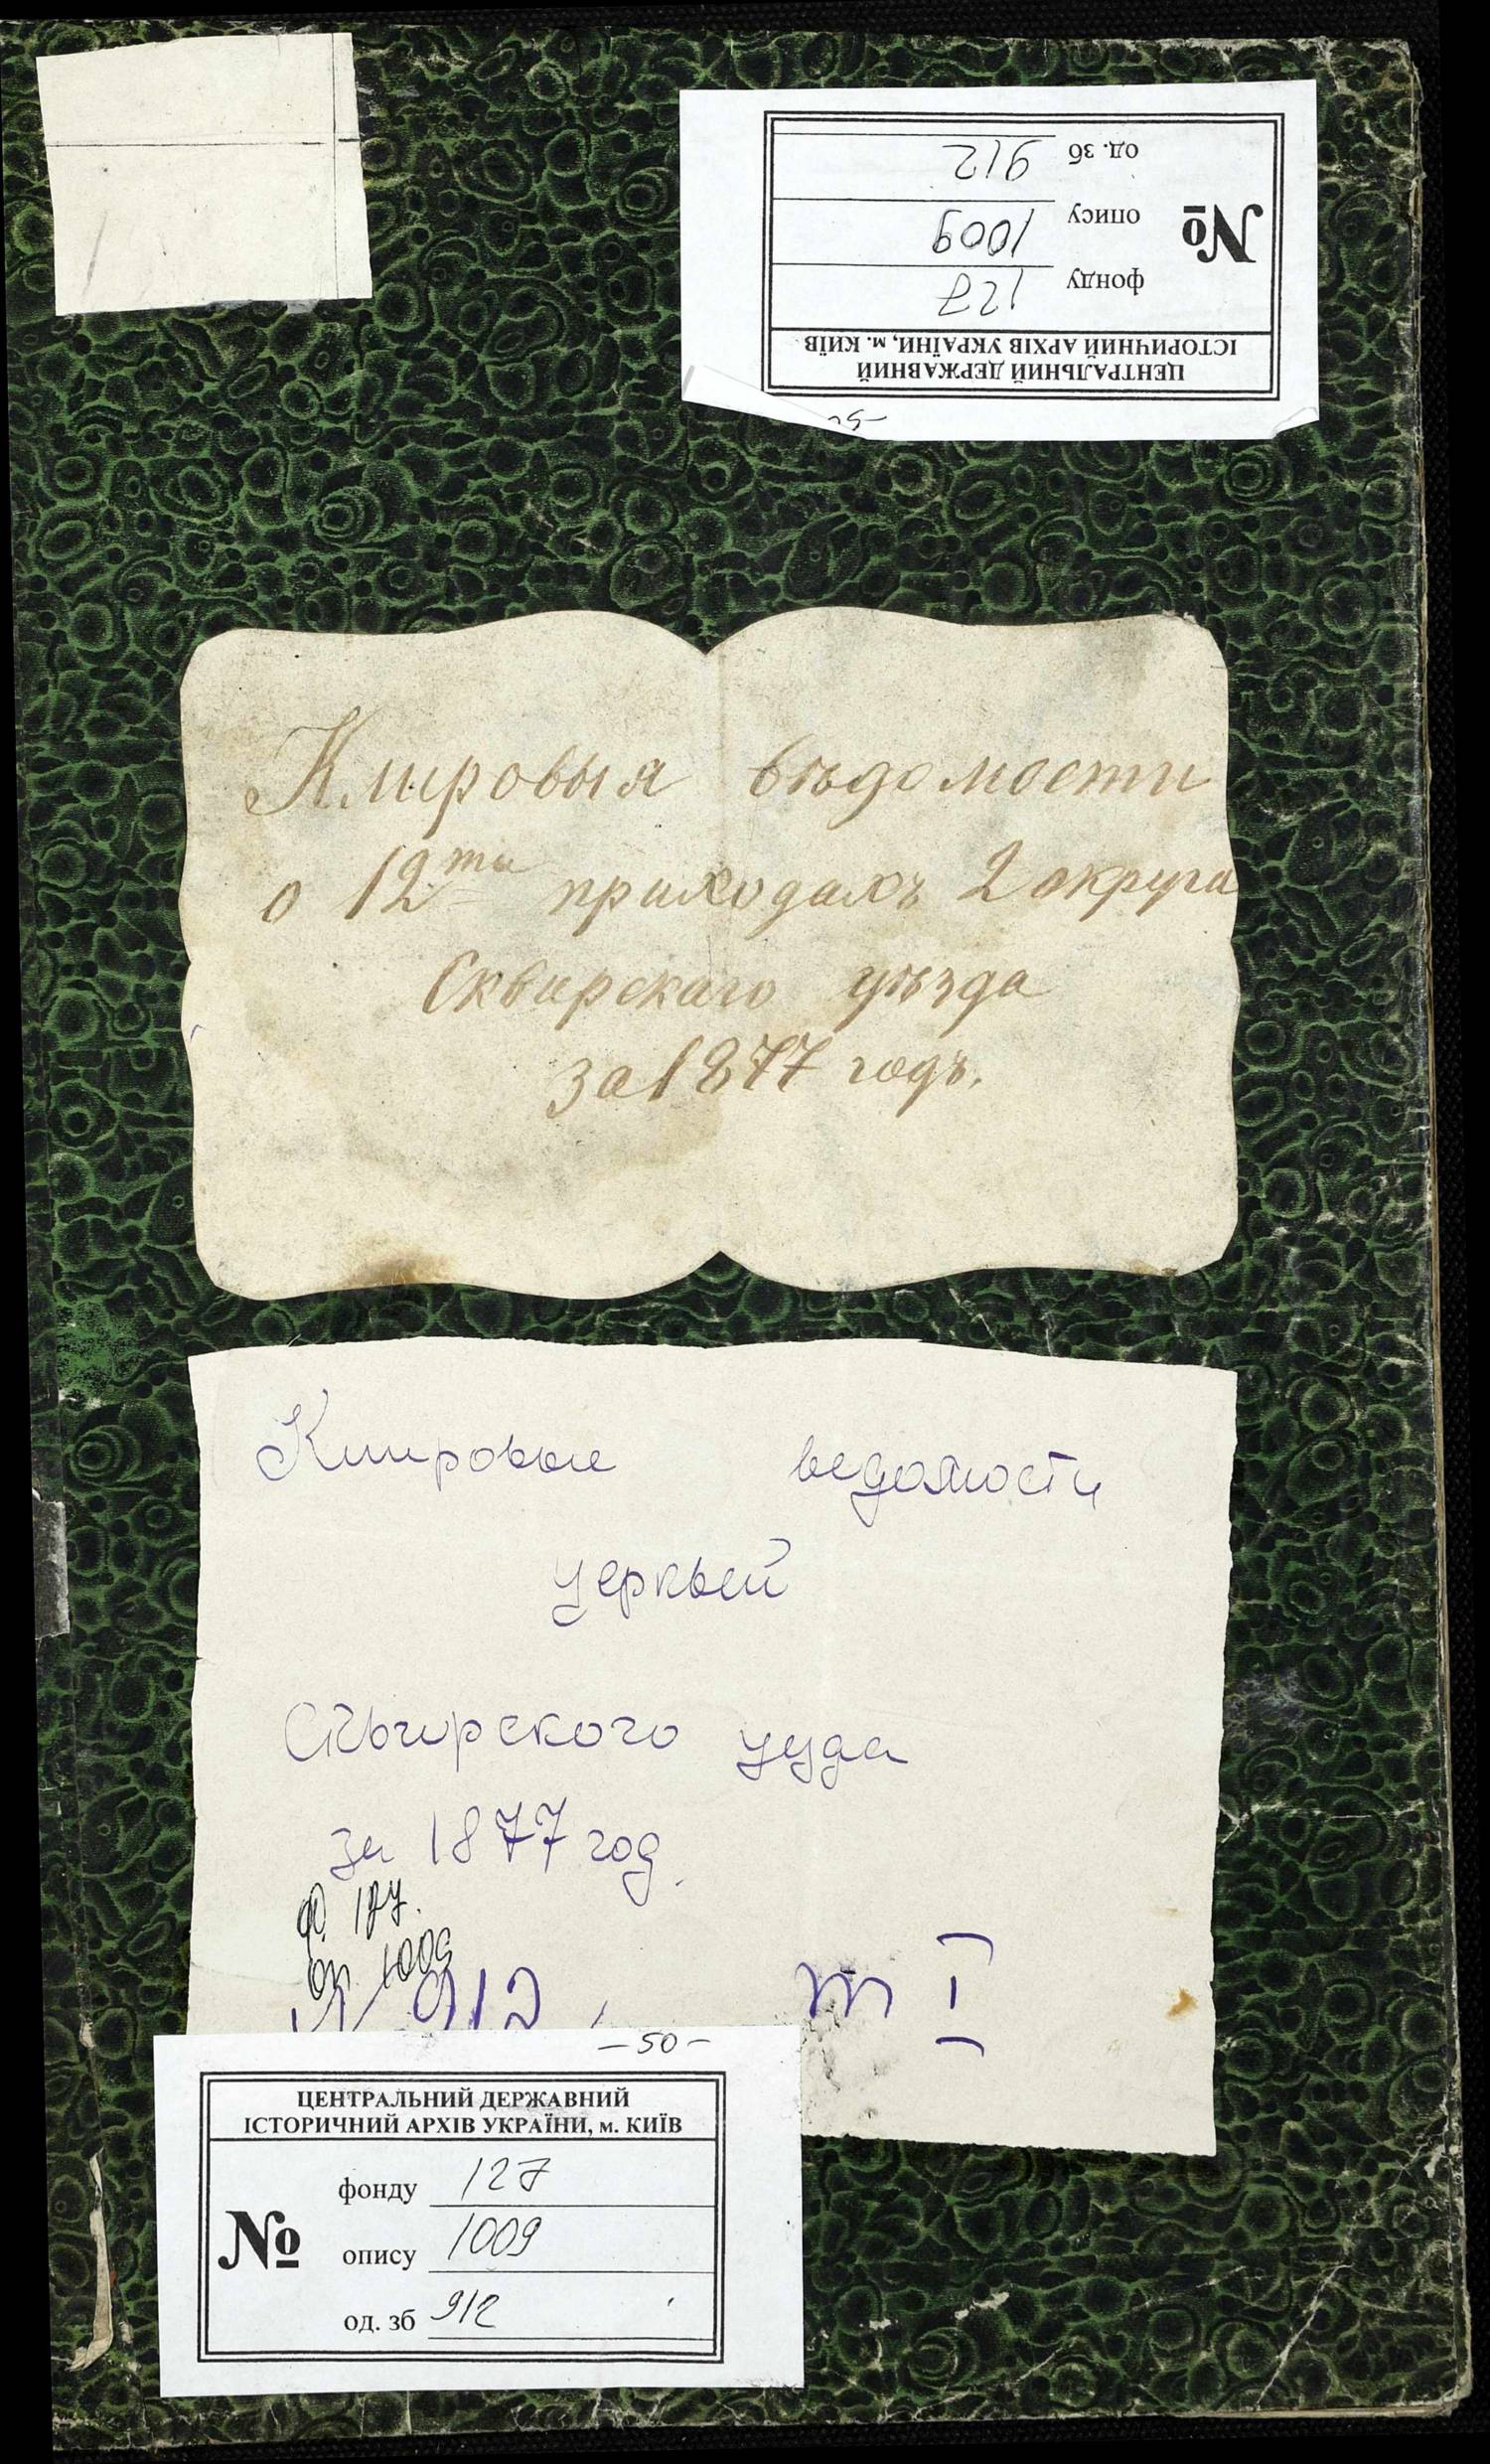 ЦЕНТРАЛЬНИЙ ДЕРЖАВНИЙ
ІСТОРИЧНИЙ АРХІВ УКРАЇНИ, м. КИЇВ
№
фонду 127
опису 1009
од. зб 912
Клировыя вѣдомости
о 12ти приходахъ 2 округа
Сквирскаго уѣзда
за 1877 годъ.
Клировые ведомости
церквей
Сквирского уезда
за 1877 год.
ф. 127.
оп. 1009
№ 912, т I
-50-
ЦЕНТРАЛЬНИЙ ДЕРЖАВНИЙ
ІСТОРИЧНИЙ АРХІВ УКРАЇНИ, м. КИЇВ
№
фонду 127
опису 1009
од. зб 912